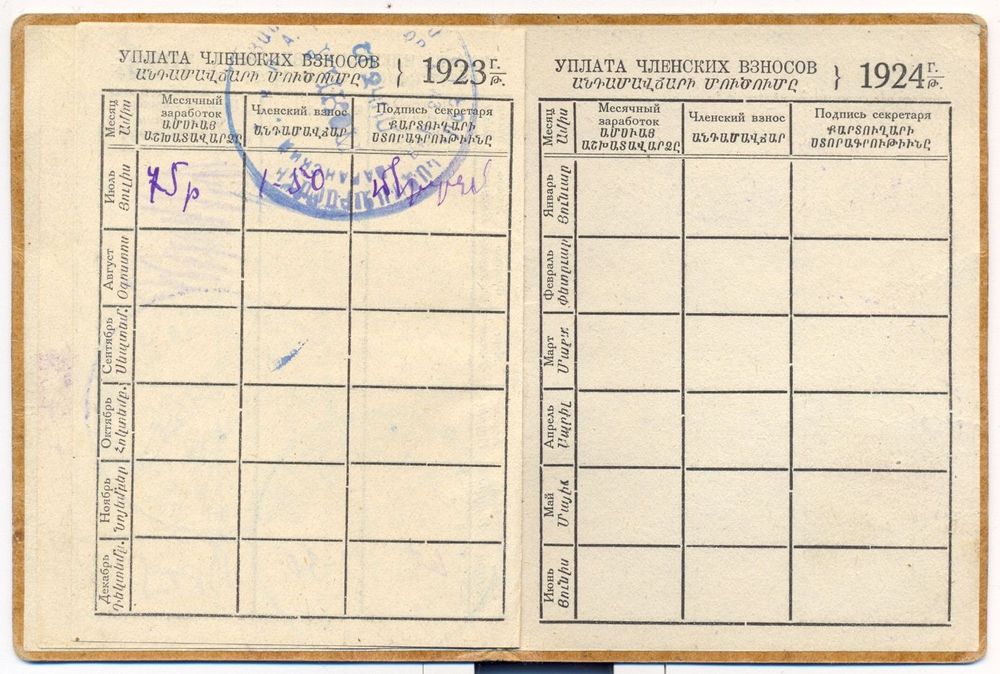 УПЛАТА ЧЛЕНСКИХ ВЗНОСОВ
ԱՆԴԱՄԱՎՃԱՐԻ ՄՈՒԾՈՒՄԸ
} 1923 г. թ.
Месяц
Ամիս
Месячный заработок
ԱՄՍԻԱՅ ԱՇԽԱՏԱՎԱՐՁԸ
Членский взнос
ԱՆԴԱՄԱՎՃԱՐ
Подпись секретаря
ՔԱՐՏՈՒՂԱՐԻ ՍՏՈՐԱԳՐՈՒԹԻԻՆԸ
Июль
Յուլիս
75 р
1-50
Август
Օգոստոս
Сентябрь
Սեպտեմ.
Октябрь
Հոկտեմբ.
Ноябрь
Նոյեմբեր
Декабрь
Դեկտեմբ.
УПЛАТА ЧЛЕНСКИХ ВЗНОСОВ
ԱՆԴԱՄԱՎՃԱՐԻ ՄՈՒԾՈՒՄԸ
} 1924 г. թ.
Месяц
Ամիս
Месячный заработок
ԱՄՍԻԱՅ ԱՇԽԱՏԱՎԱՐՁԸ
Членский взнос
ԱՆԴԱՄԱՎՃԱՐ
Подпись секретаря
ՔԱՐՏՈՒՂԱՐԻ ՍՏՈՐԱԳՐՈՒԹԻԻՆԸ
Январь
Յունուար
Февраль
Փետրուար
Март
Մարտ
Апрель
Ապրիլ
Май
Մայիս
Июнь
Յունիս